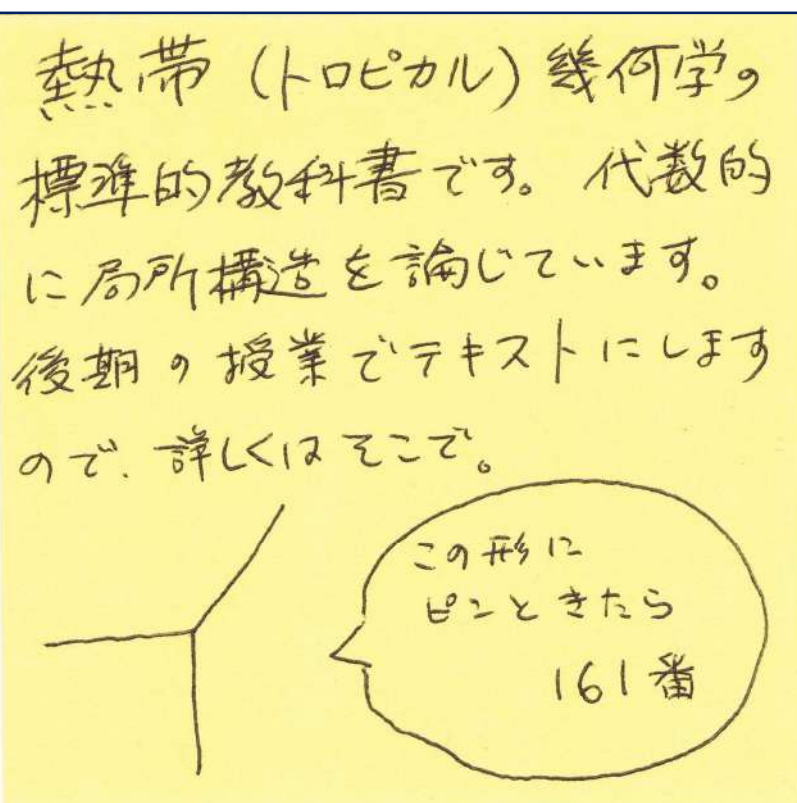 熱帯（トロピカル）幾何学の
標準的教科書です。代数的
に局所構造を論じています。
後期の授業でテキストにします
ので、詳しくはそこで。
この形に
ピンときたら
161番